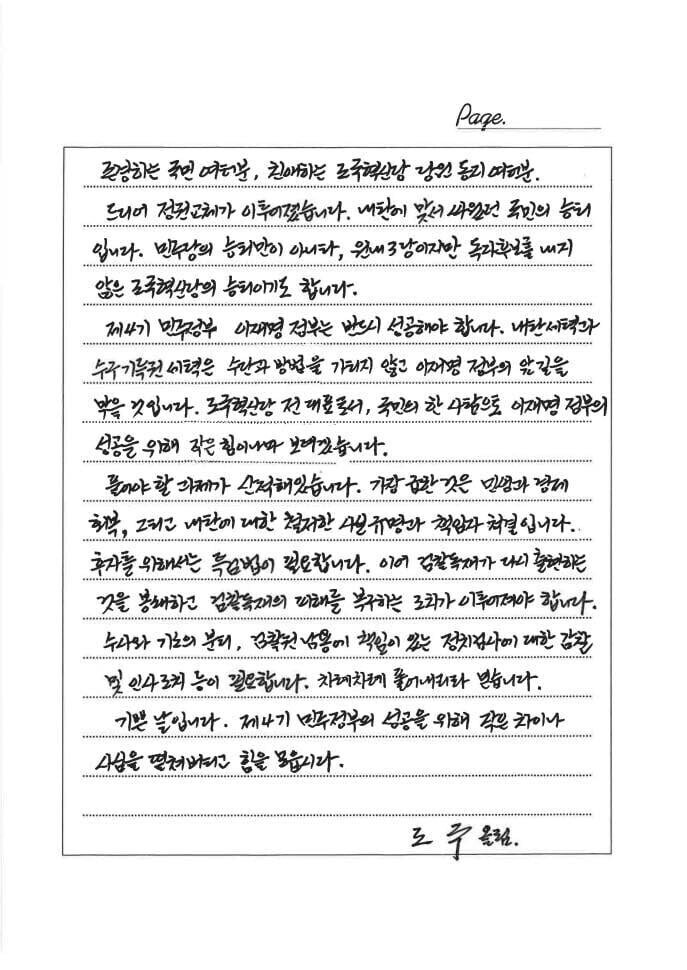 Page.
존경하는 국민 여러분, 친애하는 조국혁신당 당원 동지 여러분.
드디어 정권교체가 이루어졌습니다. 내란에 맞서 싸워왔던 국민의 승리
입니다. 민주당의 승리만이 아니라, 원내 3당이지만 독자후보를 내지
않은 조국혁신당의 승리이기도 합니다.
제4기 민주정부 이재명 정부는 반드시 성공해야 합니다. 내란세력과
수구기득권세력은 수단과 방법을 가리지 않고 이재명 정부의 앞길을
막을 것입니다. 조국혁신당 전 대표로서, 국민의 한 사람으로 이재명 정부의
성공을 위해 작은 힘이나마 보태겠습니다.
풀어야 할 과제가 산적해있습니다. 가장 급한 것은 민생과 경제
회복, 그리고 내란에 대한 철저한 진실규명과 책임자 처벌입니다.
후자를 위해서는 특검법이 필요합니다. 이어 검찰독재가 다시 출현하는
것을 봉쇄하고 검찰독재의 피해를 복구하는 조치가 이루어져야 합니다.
수사와 기소의 분리, 검찰권 남용에 책임이 있는 정치검사에 대한 감찰
및 인사조치 등이 필요합니다. 차례차례 풀어내리라 믿습니다.
기쁜 날입니다. 제4기 민주정부의 성공을 위해 작은 차이나
사심을 떨쳐버리고 힘을 모읍시다.
조 국 올림.